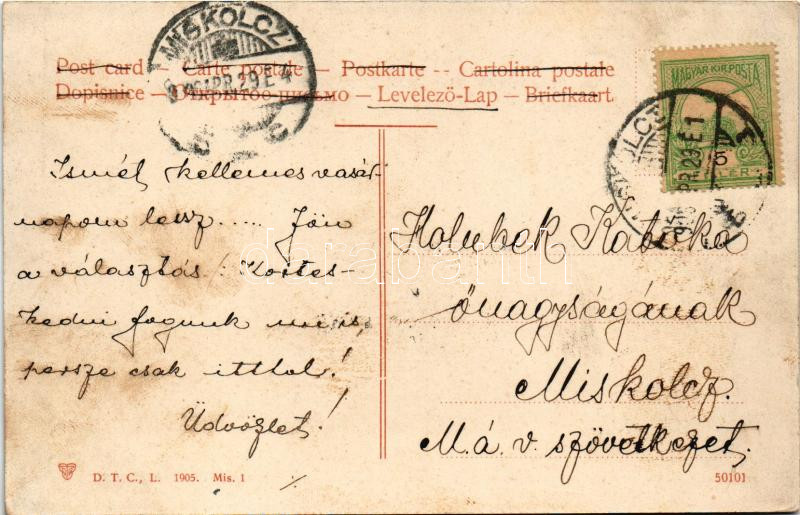 Post card – Carte postale – Postkarte -- Cartolina postale
Dopisnice – Открытое письмо – Levelező-Lap – Briefkaart
MISKOLCZ
APR. 29 E 4
MAGYAR KIR. POSTA
MISKOLCZ
APR 29 E 1
Ismét kellemes vasár-
napom lessz ..... Jön
a választás! Kortes-
kedni fogunk mi is,
persze csak itthol!
Üdvözlet!
Holubek Katóka
őnagyságának
Miskolcz.
M.á.v. szövetkezet.
darabanth
D. T. C., L. 1905. Mis. 1
50101